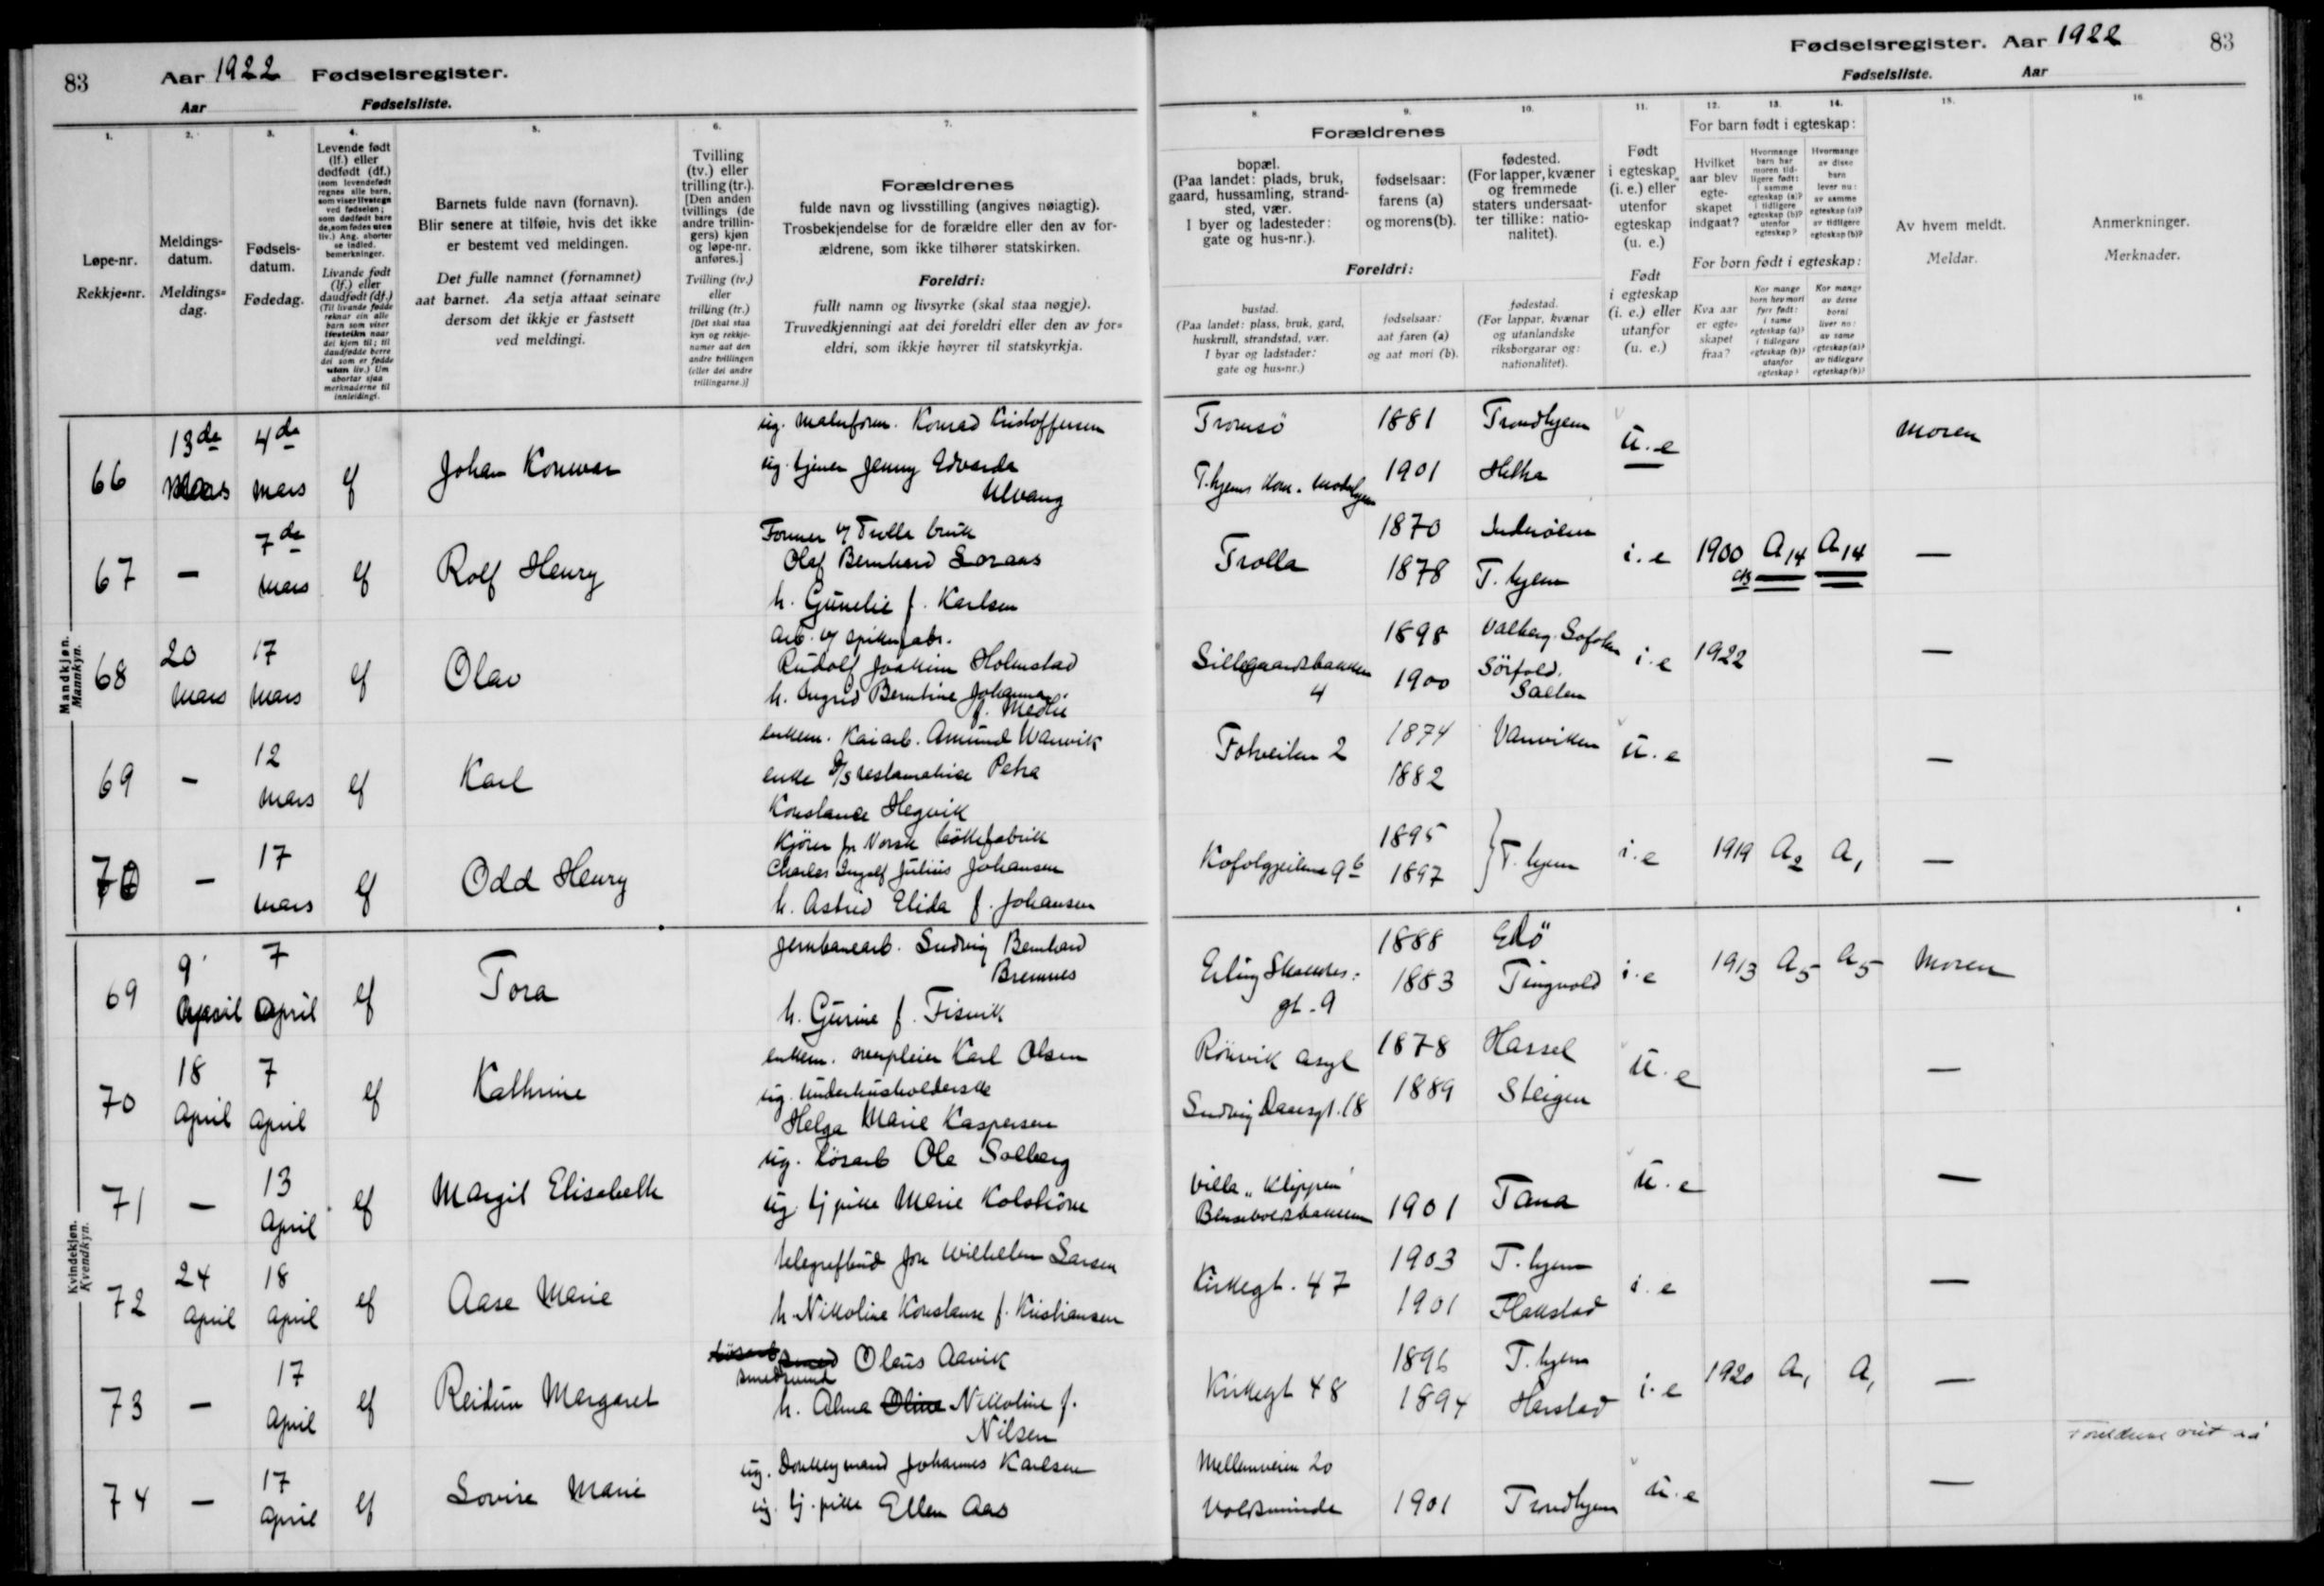 83 Aar 1922 Fødselsregister.
Aar Fødselsliste.
Fødselsregister. Aar 1922 83
Fødselsliste. Aar
1. 2. 3. 4. 5. 6. 7.
Løpe-nr.
Rekkje-nr.
Meldings-
datum.
Meldings-
dag.
Fødsels-
datum.
Fødedag.
Levende født
(lf.) eller
dødfødt (df.)
(som levendefødt
regnes alle barn,
som viser livstegn
ved fødselen;
som dødfødt bare
de, som fødes uten
liv.) Ang. aborter
se indled.
bemerkninger.
Livande født
(lf.) eller
daudfødt (df.)
(Til livande fødde
reknar ein alle
barn som viser
livsteikn naar
dei kjem til; til
daudfødde berre
dei som er fødde
utan liv.) Um
abortar sjaa
merknaderne til
innleidingi.
Barnets fulde navn (fornavn).
Blir senere at tilføie, hvis det ikke
er bestemt ved meldingen.
Det fulle namnet (fornamnet)
aat barnet. Aa setja attaat seinare
dersom det ikkje er fastsett
ved meldingi.
Tvilling
(tv.) eller
trilling (tr.).
[Den anden
tvillings (de
andre trillin-
gers) kjøn
og løpe-nr.
anføres.]
Tvilling (tv.)
eller
trilling (tr.)
[Det skal staa
kyn og rekkje-
numer aat den
andre tvillingen
(eller dei andre
trillingarne.)]
Forældrenes
fulde navn og livsstilling (angives nøiagtig).
Trosbekjendelse for de forældre eller den av for-
ældrene, som ikke tilhører statskirken.
Foreldri:
fullt namn og livsyrke (skal staa nøgje).
Truvedkjenningi aat dei foreldri eller den av for-
eldri, som ikkje høyrer til statskyrkja.
8. 9. 10. 11. 12. 13. 14. 15. 16.
Forældrenes
bopæl.
(Paa landet: plads, bruk,
gaard, hussamling, strand-
sted, vær.
I byer og ladesteder:
gate og hus-nr.).
fødselsaar:
farens (a)
og morens (b).
fødested.
(For lapper, kvæner
og fremmede
staters undersaat-
ter tillike: natio-
nalitet).
Foreldri:
bustad.
(Paa landet: plass, bruk, gard,
huskrull, strandstad, vær.
I byar og ladstader:
gate og hus-nr.)
fødselsaar:
aat faren (a)
og aat mori (b).
fødestad.
(For lappar, kvænar
og utanlandske
riksborgarar og:
nationalitet).
Født
i egteskap
(i. e.) eller
utenfor
egteskap
(u. e.)
Født
i egteskap
(i. e.) eller
utanfor
(u. e.)
For barn født i egteskap:
Hvilket
aar blev
egte-
skapet
indgaat?
Hvormange
barn har
moren tid-
ligere født:
i samme
egteskap (a)?
i tidligere
egteskap (b)?
utenfor
egteskap?
Hvormange
av disse
barn
lever nu:
av samme
egteskap (a)?
av tidligere
egteskap (b)?
For born født i egteskap:
Kva aar
er egte-
skapet
fraa?
Kor mange
born hev mori
fyrr født:
i same
egteskap (a)?
i tidlegare
egteskap (b)?
utanfor
egteskap?
Kor mange
av desse
borni
liver no:
av same
egteskap (a)?
av tidlegare
egteskap (b)?
Av hvem meldt.
Meldar.
Anmerkninger.
Merknader.
Mandkjøn.
Mannkyn.
66 13de mars 4de mars lf Johan
ug. Konrad Kristoffersen
ug. tjener Jenny Edvarda
Ulvang
Tromsö 1881 Trondhjem u.e moren
1901
67 – 7de mars lf Rolf Henry
Former v/ Trolla bruk
Olaf Bernhard Soraas
h. Gunelie f. Karlsen
Trolla 1870 Inderöen i.e 1900 a 14 a 14 –
1878 T.hjem
68 20 mars 17 mars lf Olav
arb. v/ spikerfabr.
Rudolf Joakim Holmstad
h. Ingrid Berntine Johanna
f. Medlie
4
1898 Valberg. Lofoten i.e 1922 –
1900 Sörfold.
Salten
69 – 12 mars lf Karl
enkem. Kaiarb. Amund Wanvik
enke Petra
Konstanse Hegvik
2 1874 Vanviken u.e –
1882
70 – 17 mars lf Odd Henry
Kjörer for Norsk
Charles Ingolf Julius Johansen
h. Astrid Elida f. Johansen
9b 1895 T.hjem i.e 1919 a2 a1 –
1897
Kvindekjøn.
Kvendkyn.
69 9 April 7 April lf Tora
jernbanearb. Ludvig Bernhard
Bremnes
h. Gurine f. Fisvik
Erling Skakkes:
gt. 9
1888 Edö i.e 1913 a5 a5 Moren
1883 Tingvold
70 18 April 7 April lf Kathrine
enkem. overpleier Karl Olsen
ug. underhusholderske
Helga Marie Kaspersen
Rönvik asyl 1878 Hassel u.e –
Ludvig Daaesgt. 18 1889 Steigen
71 – 13 April lf Margit Elisabeth
ug. Lösarb Ole Solberg
ug. tj pike Marie
Villa "Klippen" u.e –
1901 Tana
72 24 April 18 April lf Aase Marie
telegrafbud Jon Wilhelm Larsen
h. Nikoline Konstanse f. Kristiansen
Kirkegt. 47 1903 T.hjem i.e –
1901 Flakstad
73 – 17 April lf Reidun Margaret
Olaus Aavik
h. Alma Oline Nikoline f.
Nilsen
Kirkegt 48 1896 T.hjem i.e 1920 a1 a1 –
1894 Harstad
74 – 17 April lf Lovise Marie
ug. Donkeymand Johannes Karlsen
ug. tj. pike Ellen Aas
Mellemveien 20 u.e –
Voldsminde 1901 Trondhjem